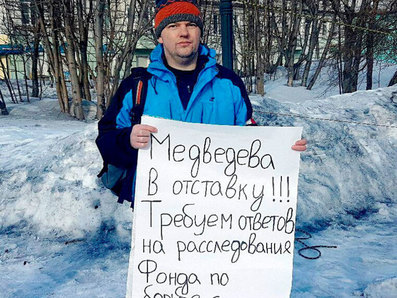 Медведева
в отставку!!!
Требуем ответов
на расследования
Фонда по